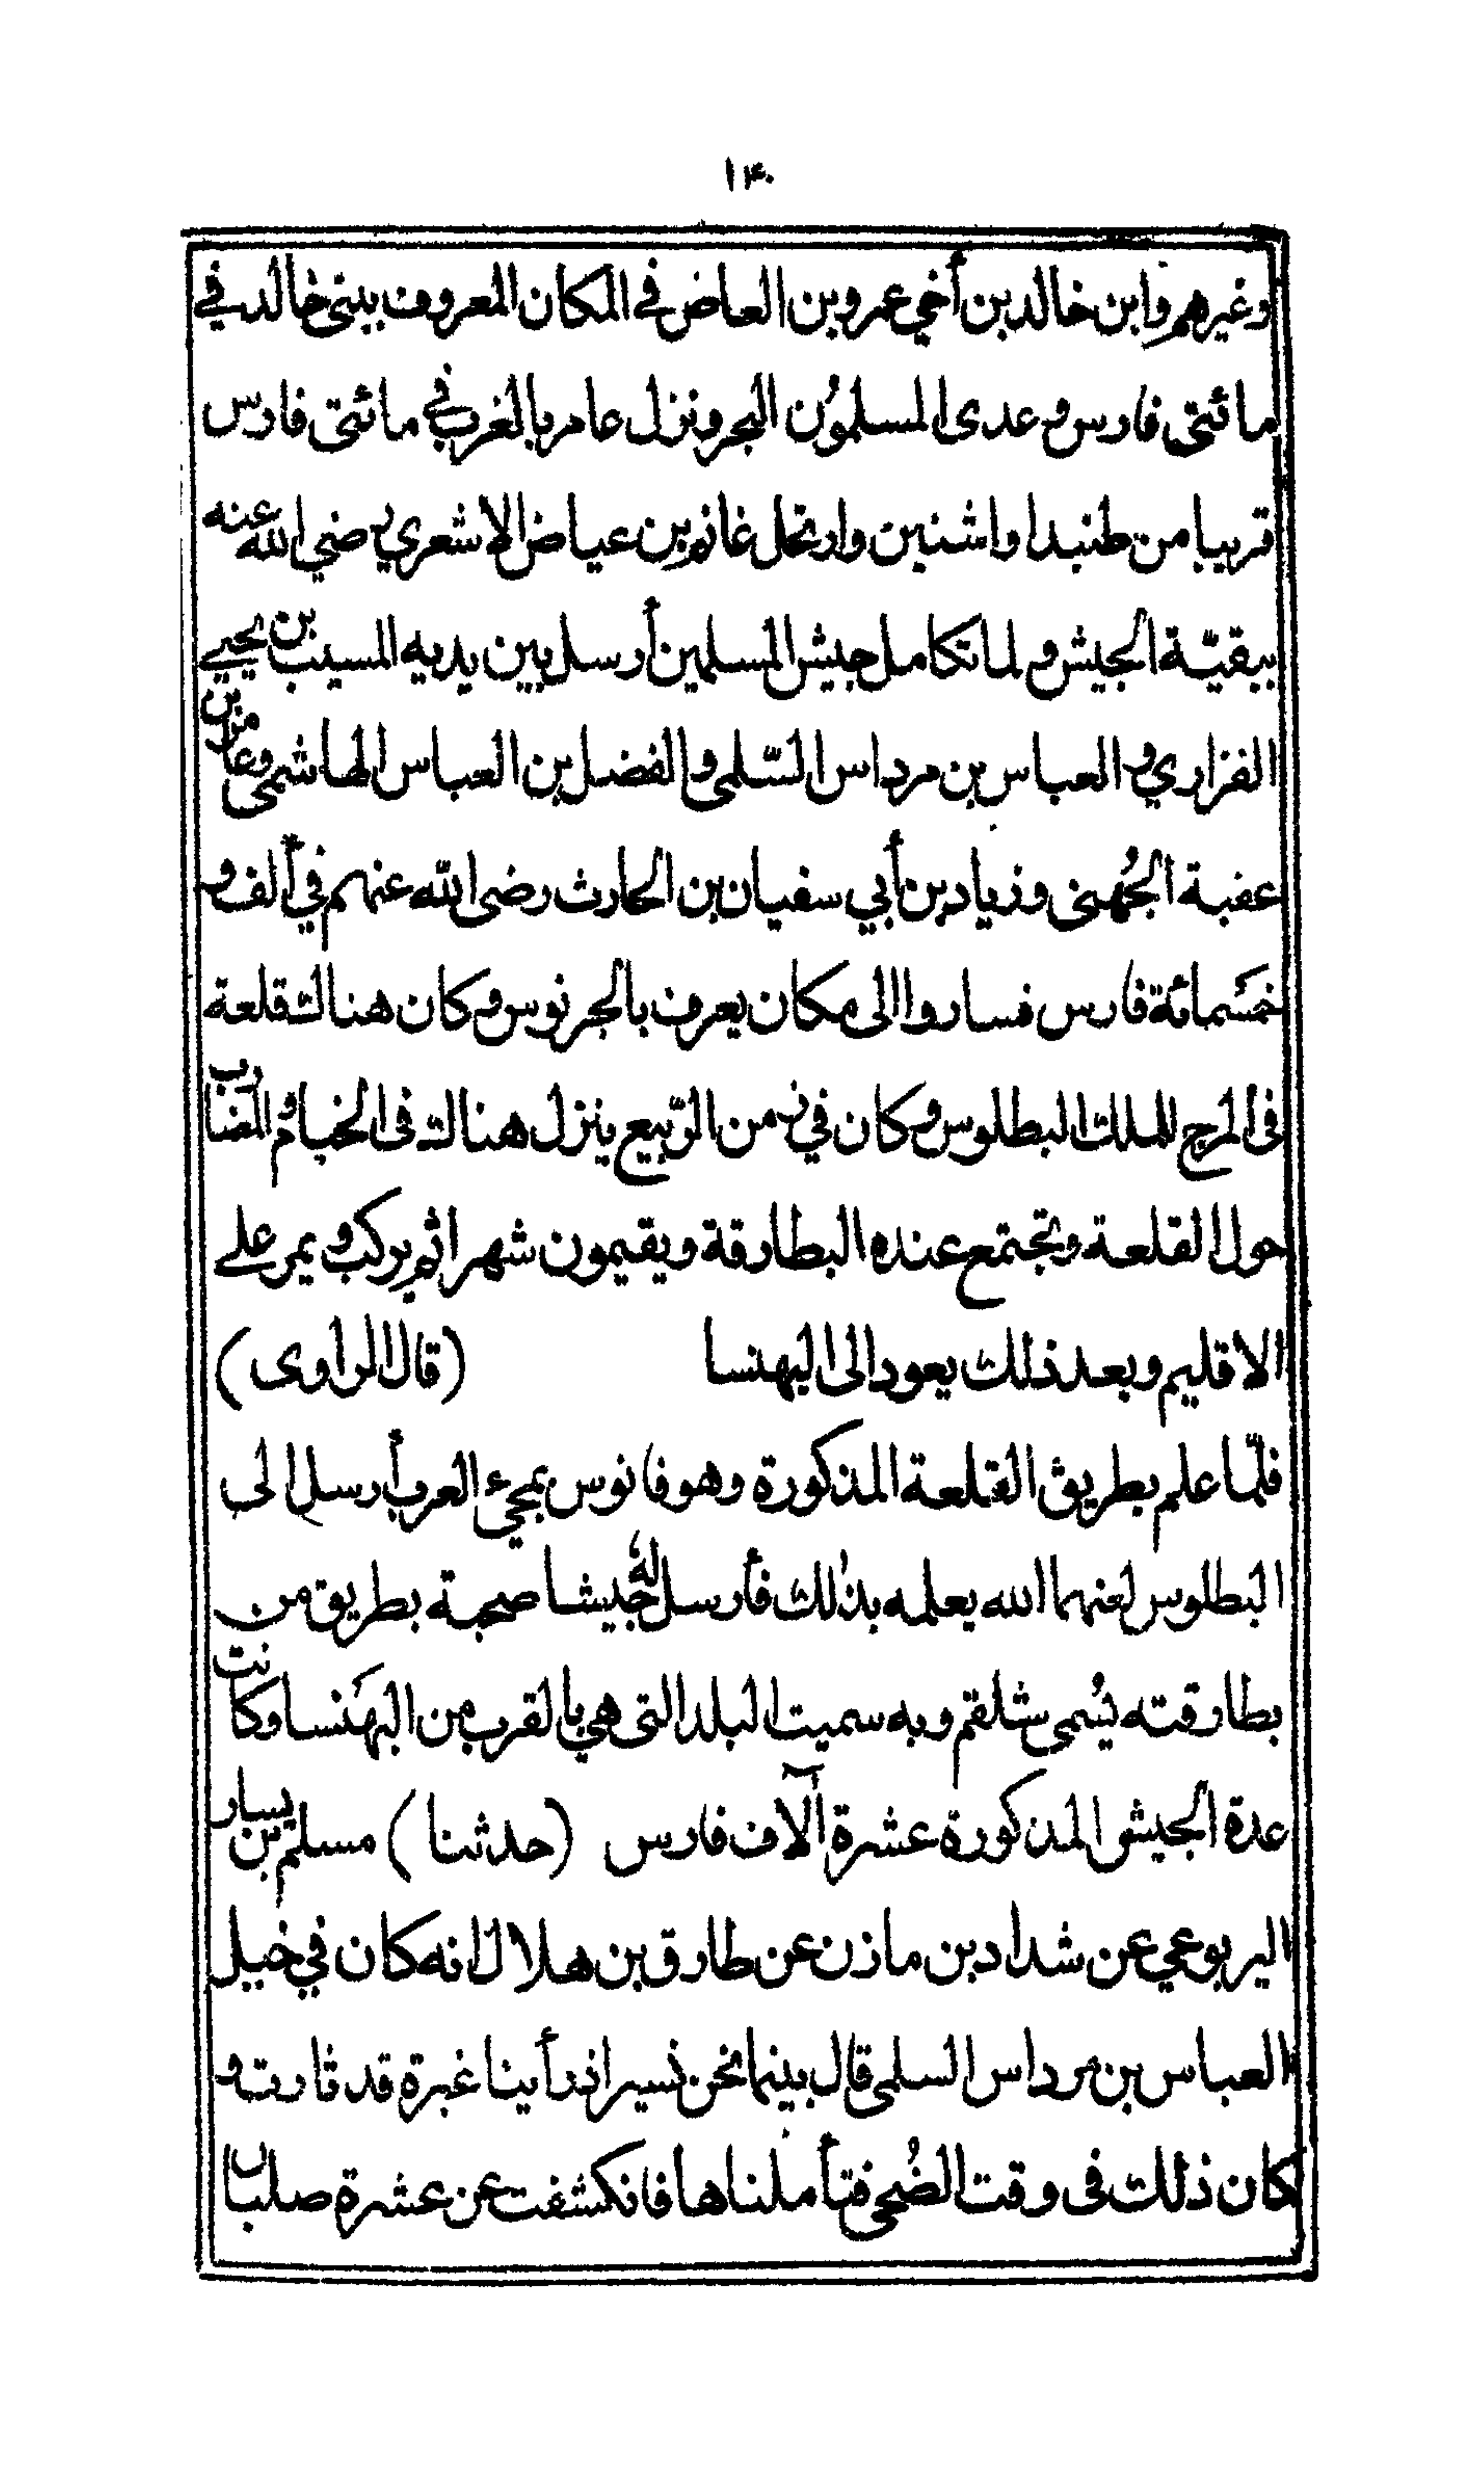 ١٤٠
وغيرهم وابن خالد بن أخي عمرو بن العاض في المكان المعروف ببني خالد في
مائتى فارس وعدى المسلمُون البحر ونزل عامر بالغرب في مائتى فارس
قريبا من طنبدا واشنين وارتحل غانم بن عياض الاشعري رضي الله عنه
ببقيّة الجيش ولما تكامل جيش المسلمين أرسل بين يديه المسيب بن يحيى
الفزاري والعباس بن مرداس السّلمى والفضل بن العباس الهاشمى وعامر بن
عقبة الجُهنى وزياد بن أبي سفيان بن الحارث رضى الله عنهم في ألف و
خمَسَمائة فارس فساروا الى مكان يعرف بالجرنوس وكان هنالك قلعة
فى المرج للملك البطلوس وكان في زمن الرّبيع ينزل هنالك فى الخيام والمضارب
حول القلعة وتجتمع عنده البطارقة ويقيمون شهرا ثم يركب ويمر على
الاقليم وبعد ذلك يعود الى البهنسا (قال الراوى)
فلمّا علم بطريق القلعة المذكورة وهو فانوس بمجئ العرب أرسل الى
البطلوس لعنهما الله يعلمه بذلك فأرسل لهُ جيشا صحبة بطريق من
بطارقته يُسمى شلقم وبه سميت البلد التى هي بالقرب من البهَنسا وكانت
عدة الجيش المذكورة عشرة آلآف فارس (حدثنا) مسلم بن يسار
اليربوعي عن شداد بن مازن عن طارق بن هلال انه كان في خيل
العباس بن مرداس السلمى قال بينما نحن نسير اذ رأينا غبرة قد ثارت و
كان ذلك فى وقت الضُحى فتأملناها فانكشفت عن عشرة صلبان